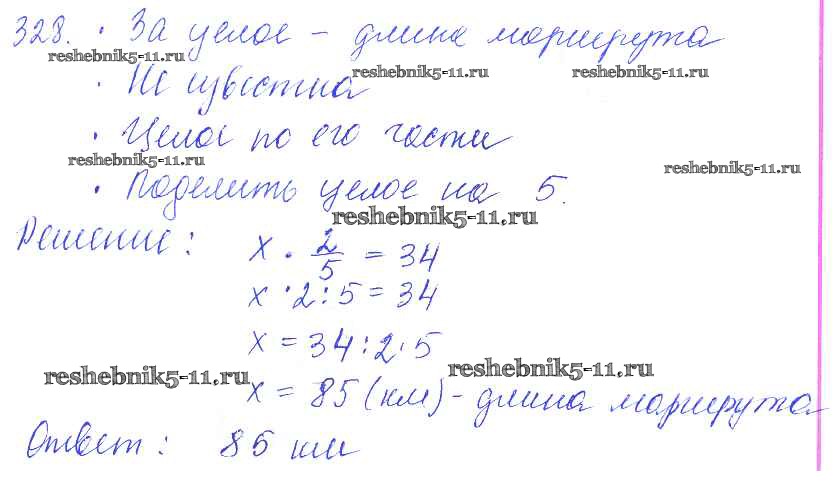 328. • За целое – длина маршрута
reshebnik5-11.ru reshebnik5-11.ru reshebnik5-11.ru
• Не известна
• Целое по его части
reshebnik5-11.ru reshebnik5-11.ru
• Поделить целое на 5.
reshebnik5-11.ru
Решение: x · 2/5 = 34
x · 2 : 5 = 34
x = 34 : 2 · 5
reshebnik5-11.ru reshebnik5-11.ru
x = 85 (км) - длина маршрута
Ответ: 85 км